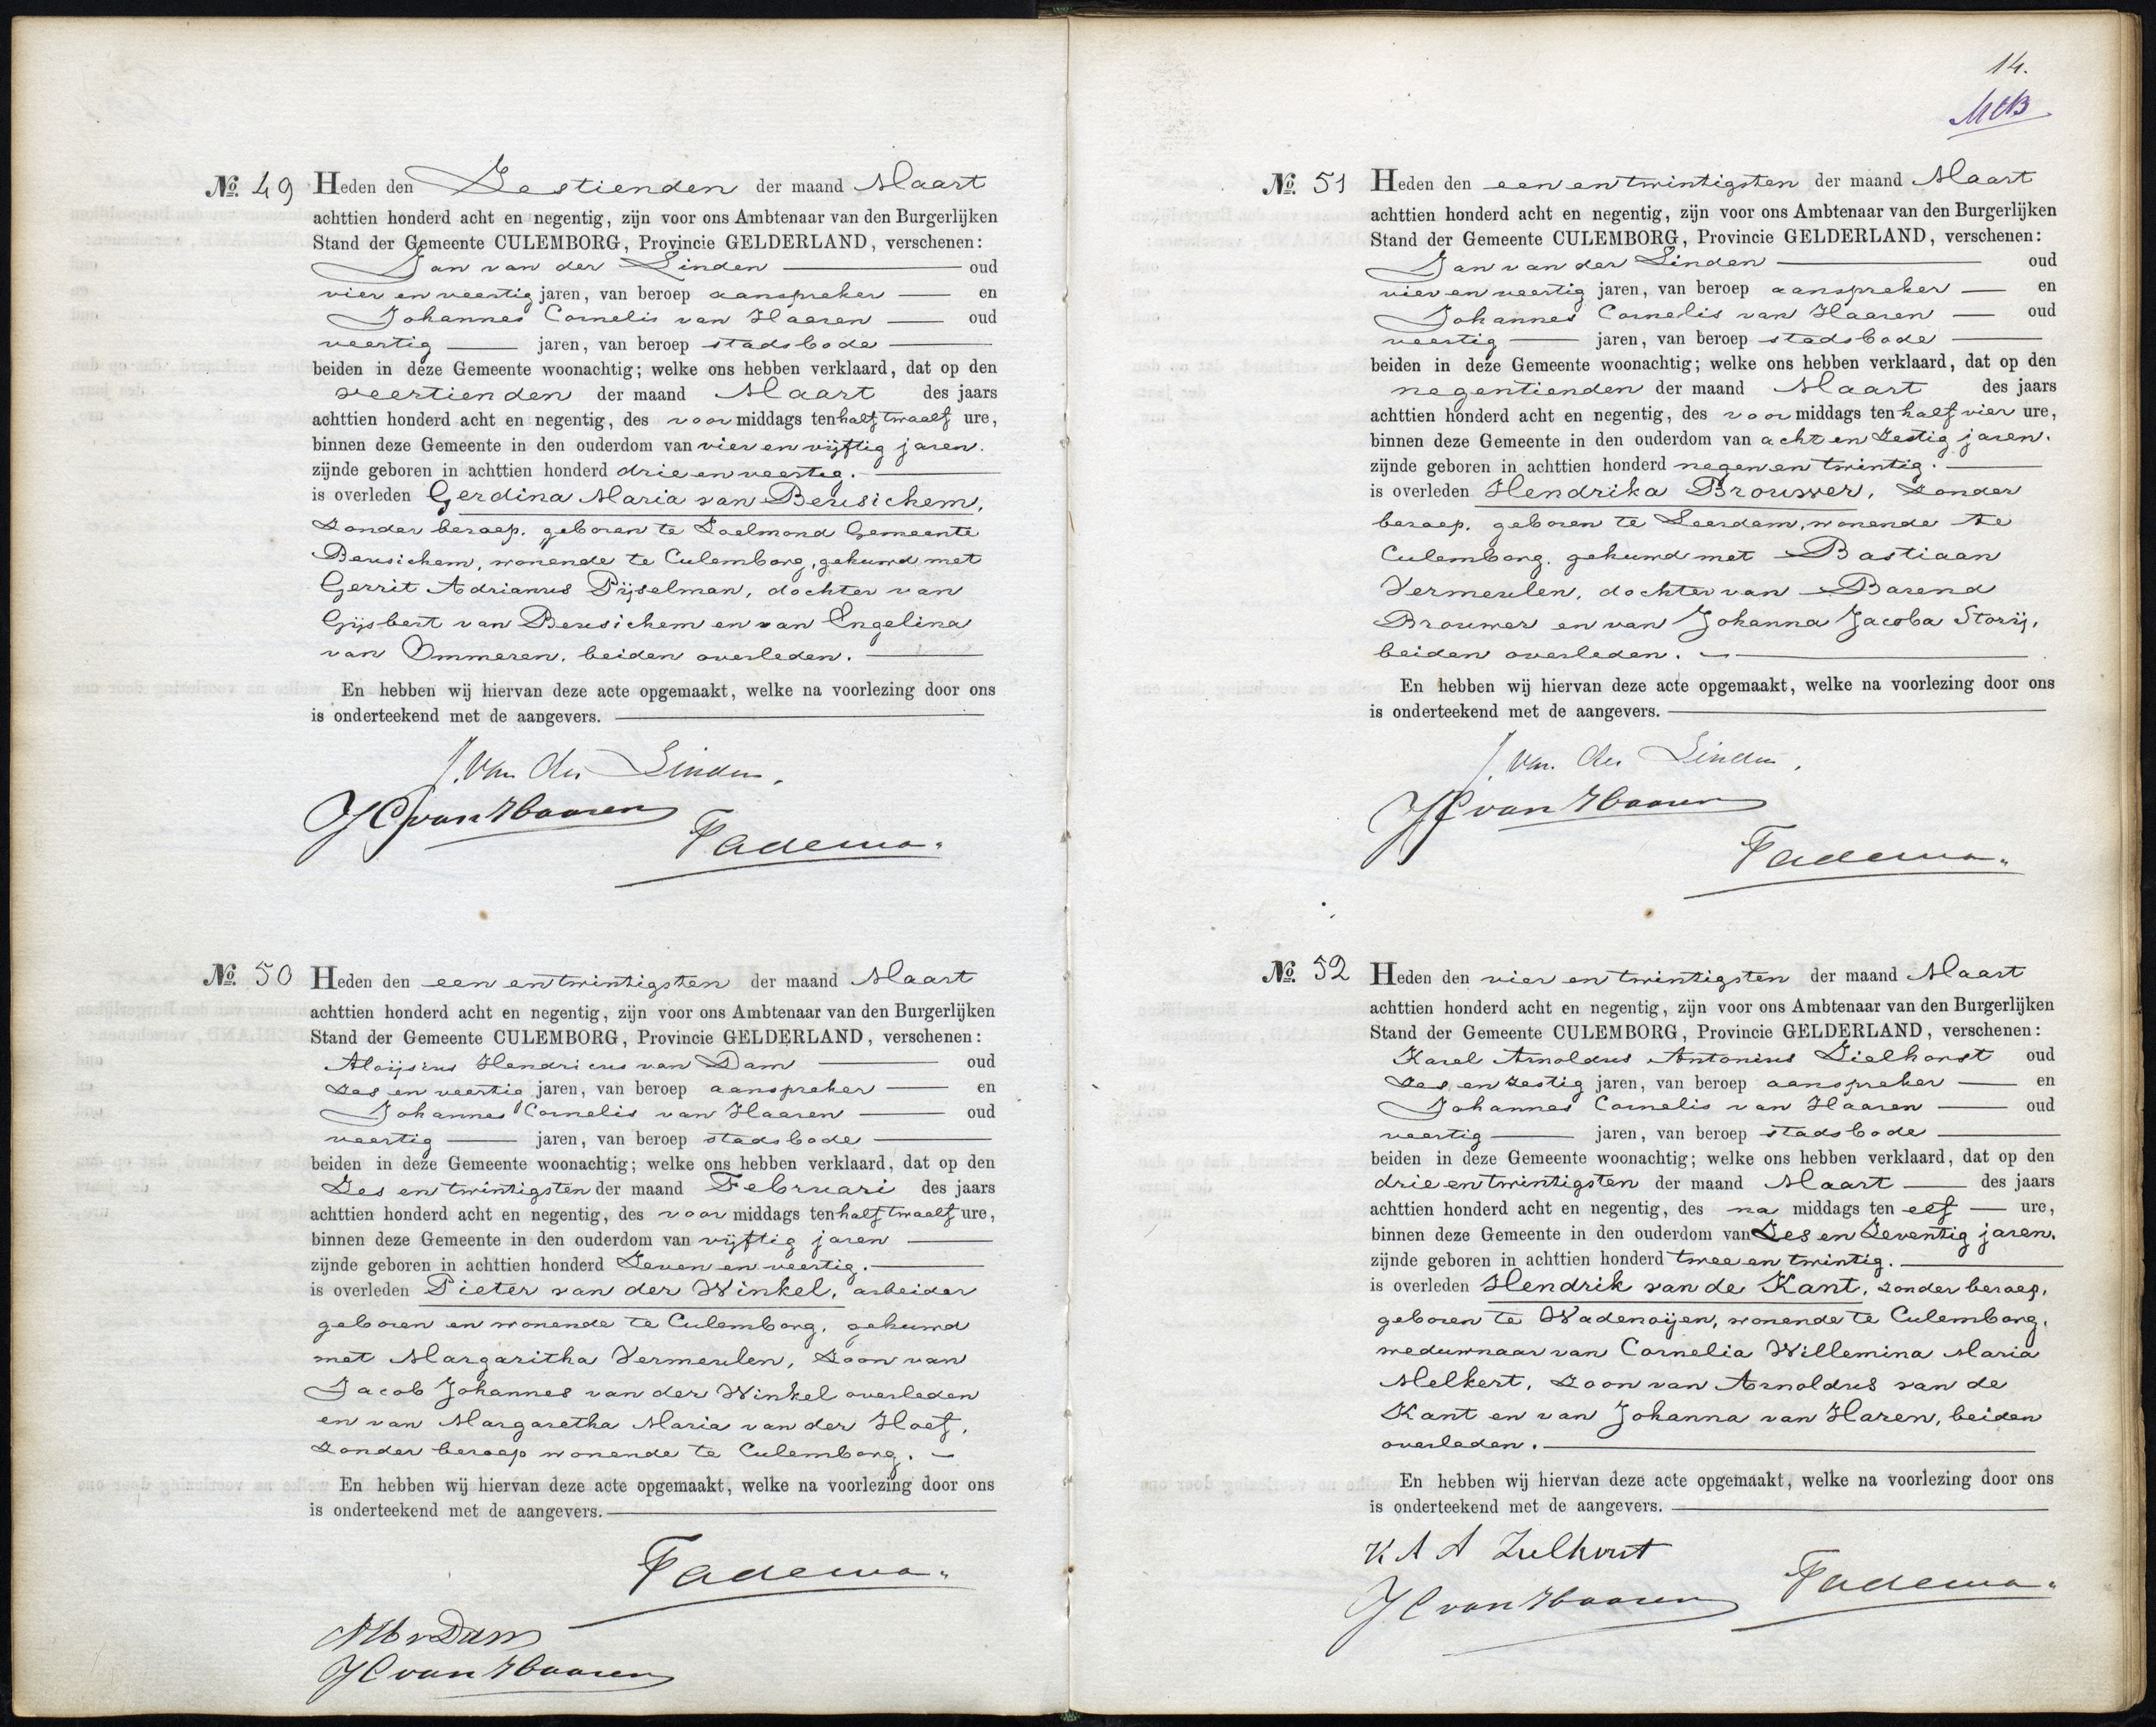 No. 49 Heden den Zestienden der maand Maart
achttien honderd acht en negentig, zijn voor ons Ambtenaar van den Burgerlijken
Stand der Gemeente CULEMBORG, Provincie GELDERLAND, verschenen:
Jan van der Linden oud
vier en veertig jaren, van beroep aanspreker en
Johannes Cornelis van Haaren oud
veertig jaren, van beroep stadsbode
beiden in deze Gemeente woonachtig; welke ons hebben verklaard, dat op den
veertienden der maand Maart des jaars
achttien honderd acht en negentig, des voormiddags ten half twaalf ure,
binnen deze Gemeente in den ouderdom van vier en vijftig jaren.
zijnde geboren in achttien honderd drie en veertig.
is overleden Gerdina Maria van Beusichem,
zonder beroep. geboren te Zoelmond Gemeente
Beusichem, wonende te Culemborg, gehuwd met
Gerrit Adrianus Pijselman, dochter van
Gijsbert van Beusichem en van Engelina
van Ommeren, beiden overleden.
En hebben wij hiervan deze acte opgemaakt, welke na voorlezing door ons
is onderteekend met de aangevers.
J. van der Linden.
JC van Haaren
Tadema.
No. 50 Heden den een en twintigsten der maand Maart
achttien honderd acht en negentig, zijn voor ons Ambtenaar van den Burgerlijken
Stand der Gemeente CULEMBORG, Provincie GELDERLAND, verschenen:
Aloijsius Hendricus van Dam oud
zes en veertig jaren, van beroep aanspreker en
Johannes Cornelis van Haaren oud
veertig jaren, van beroep stadsbode
beiden in deze Gemeente woonachtig; welke ons hebben verklaard, dat op den
Zes en twintigsten der maand Februari des jaars
achttien honderd acht en negentig, des voormiddags ten half twaalf ure,
binnen deze Gemeente in den ouderdom van vijftig jaren
zijnde geboren in achttien honderd Zeven en veertig.
is overleden Pieter van der Winkel, arbeider
geboren en wonende te Culemborg, gehuwd
met Margaritha Vermeulen, Zoon van
Jacob Johannes van der Winkel overleden
en van Margaretha Maria van der Hoef,
zonder beroep wonende te Culemborg.
En hebben wij hiervan deze acte opgemaakt, welke na voorlezing door ons
is onderteekend met de aangevers.
Tadema.
AHvDam
JC van Haaren
14.
No. 51 Heden den een en twintigsten der maand Maart
achttien honderd acht en negentig, zijn voor ons Ambtenaar van den Burgerlijken
Stand der Gemeente CULEMBORG, Provincie GELDERLAND, verschenen:
Jan van der Linden oud
vier en veertig jaren, van beroep aanspreker en
Johannes Cornelis van Haaren oud
veertig jaren, van beroep stadsbode
beiden in deze Gemeente woonachtig; welke ons hebben verklaard, dat op den
negentienden der maand Maart des jaars
achttien honderd acht en negentig, des voormiddags ten half vier ure,
binnen deze Gemeente in den ouderdom van acht en Zestig jaren.
zijnde geboren in achttien honderd negen en twintig.
is overleden Hendrika Brouwer, zonder
beroep. geboren te Leerdam, wonende te
Culemborg. gehuwd met Bastiaan
Vermeulen, dochter van Barend
Brouwer en van Johanna Jacoba Storij,
beiden overleden.
En hebben wij hiervan deze acte opgemaakt, welke na voorlezing door ons
is onderteekend met de aangevers.
J. van der Linden.
JC van Haaren
Tadema.
No. 52 Heden den vier en twintigsten der maand Maart
achttien honderd acht en negentig, zijn voor ons Ambtenaar van den Burgerlijken
Stand der Gemeente CULEMBORG, Provincie GELDERLAND, verschenen:
Karel Arnoldus Antonius Zielhorst oud
Zes en Zestig jaren, van beroep aanspreker en
Johannes Cornelis van Haaren oud
veertig jaren, van beroep stadsbode
beiden in deze Gemeente woonachtig; welke ons hebben verklaard, dat op den
drie en twintigsten der maand Maart des jaars
achttien honderd acht en negentig, des na middags ten elf ure,
binnen deze Gemeente in den ouderdom van Zes en Zeventig jaren.
zijnde geboren in achttien honderd twee en twintig.
is overleden Hendrik van de Kant, zonder beroep,
geboren te Wadenoijen, wonende te Culemborg,
weduwnaar van Cornelia Willemina Maria
Melkert, Zoon van Arnoldus van de
Kant en van Johanna van Haren, beiden
overleden.
En hebben wij hiervan deze acte opgemaakt, welke na voorlezing door ons
is onderteekend met de aangevers.
K A A Zielhorst
Tadema.
JC van Haaren